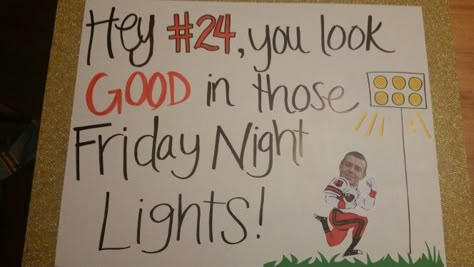 Hey #24, you look
GOOD in those
Friday Night
Lights!